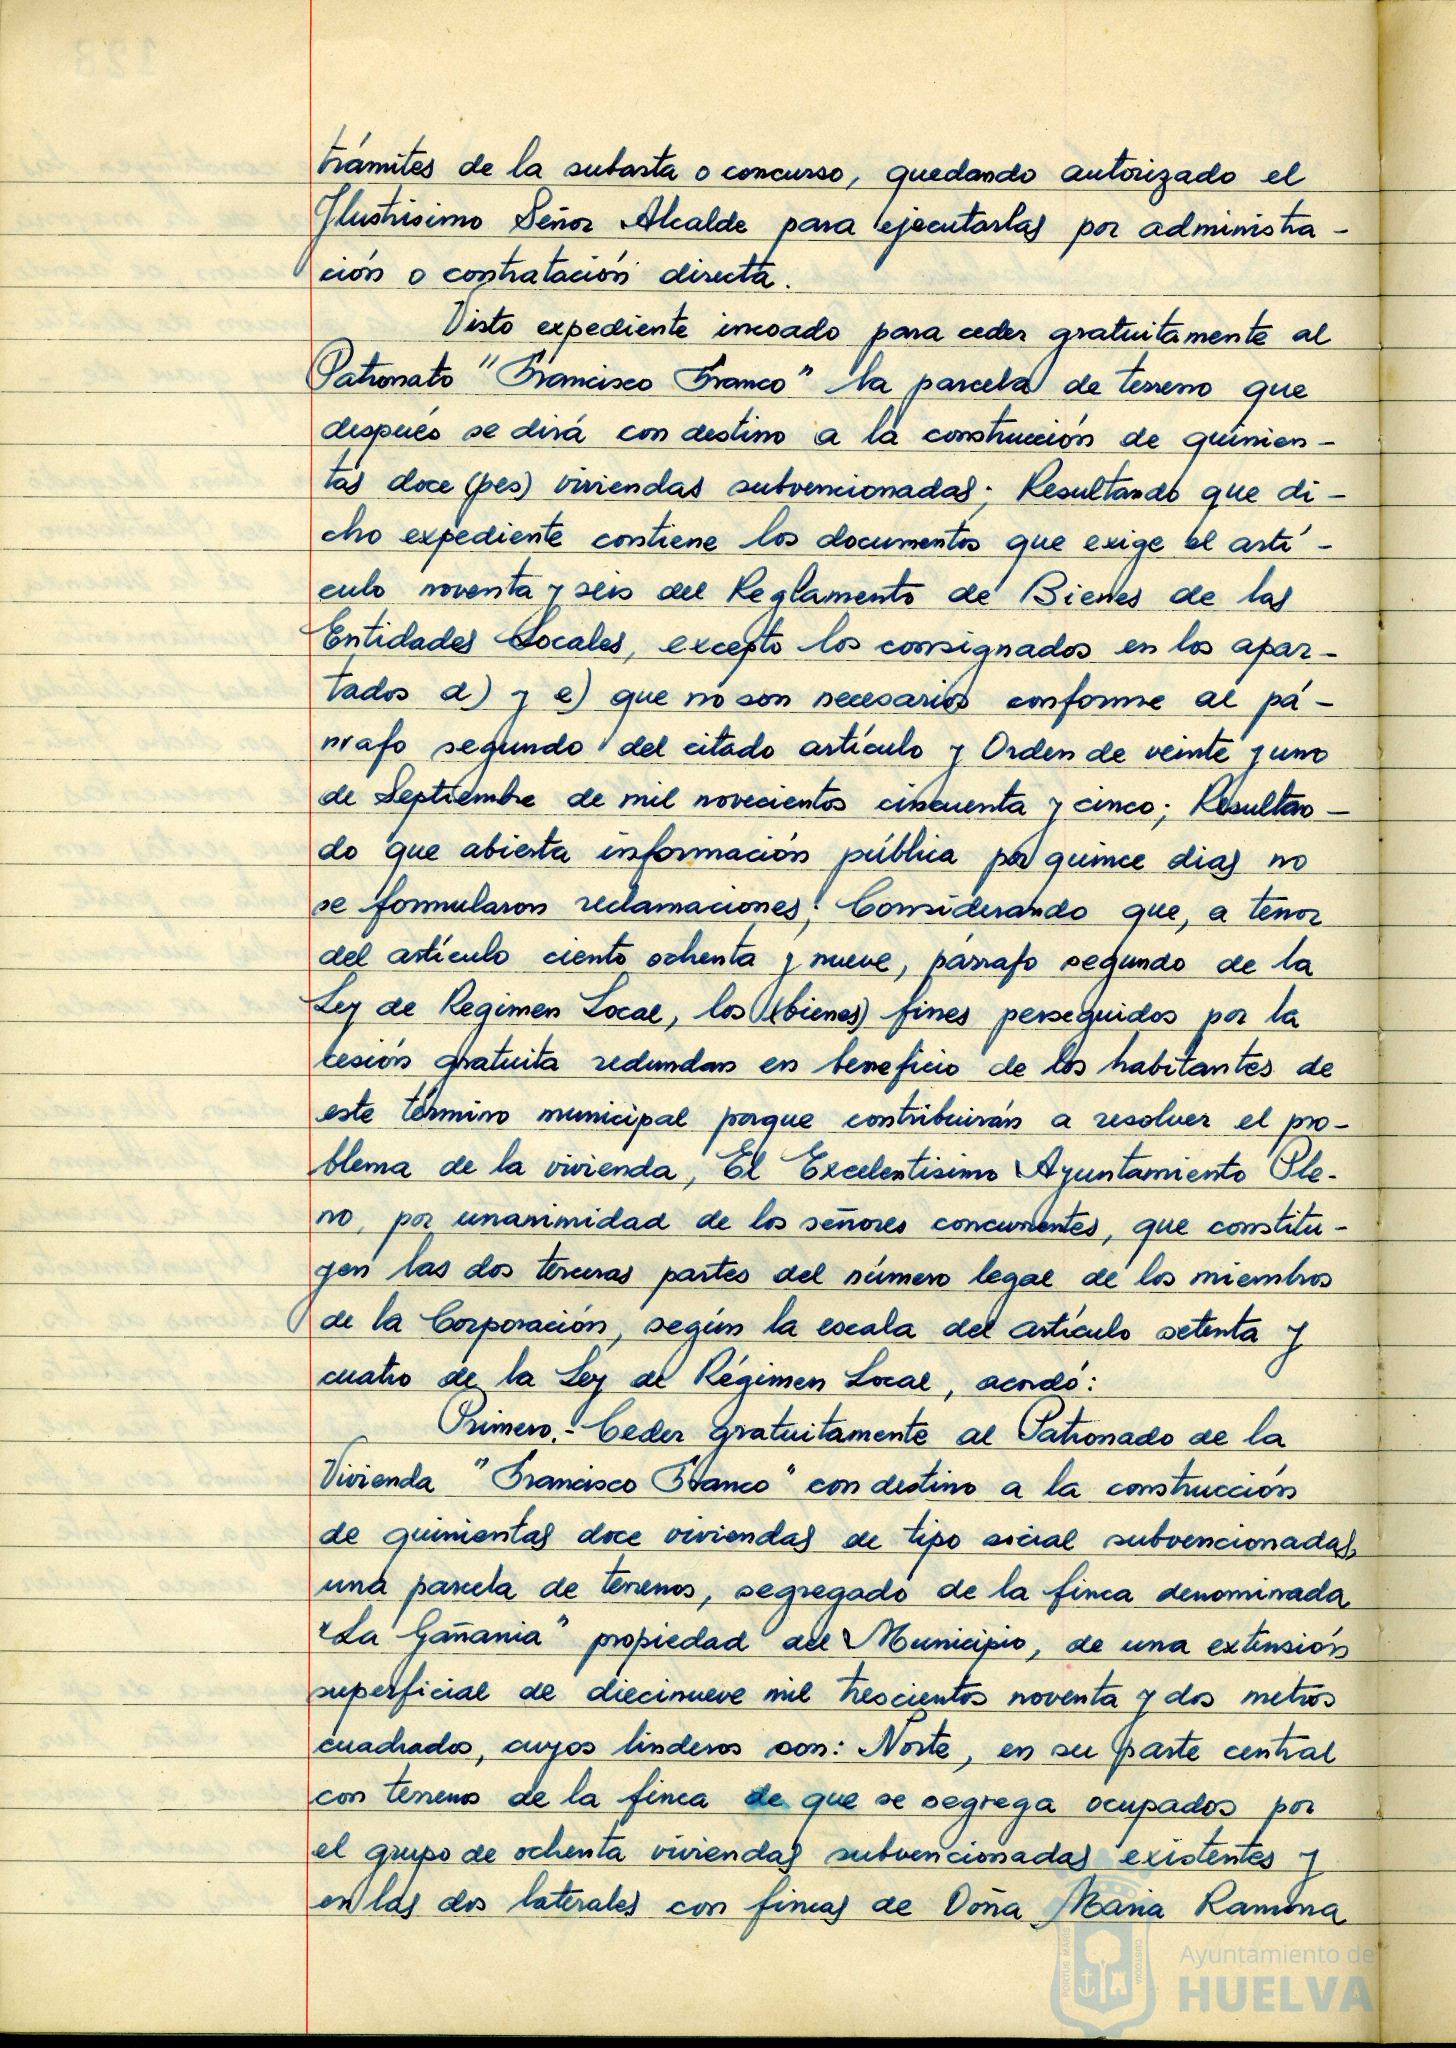 trámites de la subasta o concurso, quedando autorizado el
Ilustrisimo Señor Alcalde para ejecutarlas por administra-
ción o contratación directa.
Visto expediente incoado para ceder gratuitamente al
Patronato "Francisco Franco" la parcela de terreno que
después se dirá con destino a la construcción de quinien-
tas doce (pes) viviendas subvencionadas; Resultando que di-
cho expediente contiene los documentos que exige el artí-
culo noventa y seis del Reglamento de Bienes de las
Entidades Locales, excepto los consignados en los apar-
tados d) y e) que no son necesarios conforme al pá-
rrafo segundo del citado artículo y Orden de veinte y uno
de Septiembre de mil novecientos cincuenta y cinco; Resultan-
do que abierta información pública por quince dias no
se formularon reclamaciones; Considerando que, a tenor
del artículo ciento ochenta y nueve, párrafo segundo de la
Ley de Regimen Local, los (bienes) fines perseguidos por la
cesión gratuita redundan en beneficio de los habitantes de
este término municipal porque contribuirán a resolver el pro-
blema de la vivienda, El Excelentisimo Ayuntamiento Ple-
no, por unanimidad de los señores concurrentes, que constitu-
yen las dos terceras partes del número legal de los miembros
de la Corporación, según la escala del artículo setenta y
cuatro de la Ley de Régimen Local, acordó:
Primero.- Ceder gratuitamente al Patronado de la
Vivienda "Francisco Franco" con destino a la construcción
de quinientas doce viviendas de tipo social subvencionadas,
una parcela de terrenos, segregado de la finca denominada
"La Gañania" propiedad del Municipio, de una extensión
superficial de diecinueve mil trescientos noventa y dos metros
cuadrados, cuyos linderos son: Norte, en su parte central
con terrenos de la finca de que se segrega ocupados por
el grupo de ochenta viviendas subvencionadas existentes y
en las dos laterales con fincas de Doña Maria Ramona
Ayuntamiento de
HUELVA
PORTUS MARIS
CUSTODIA